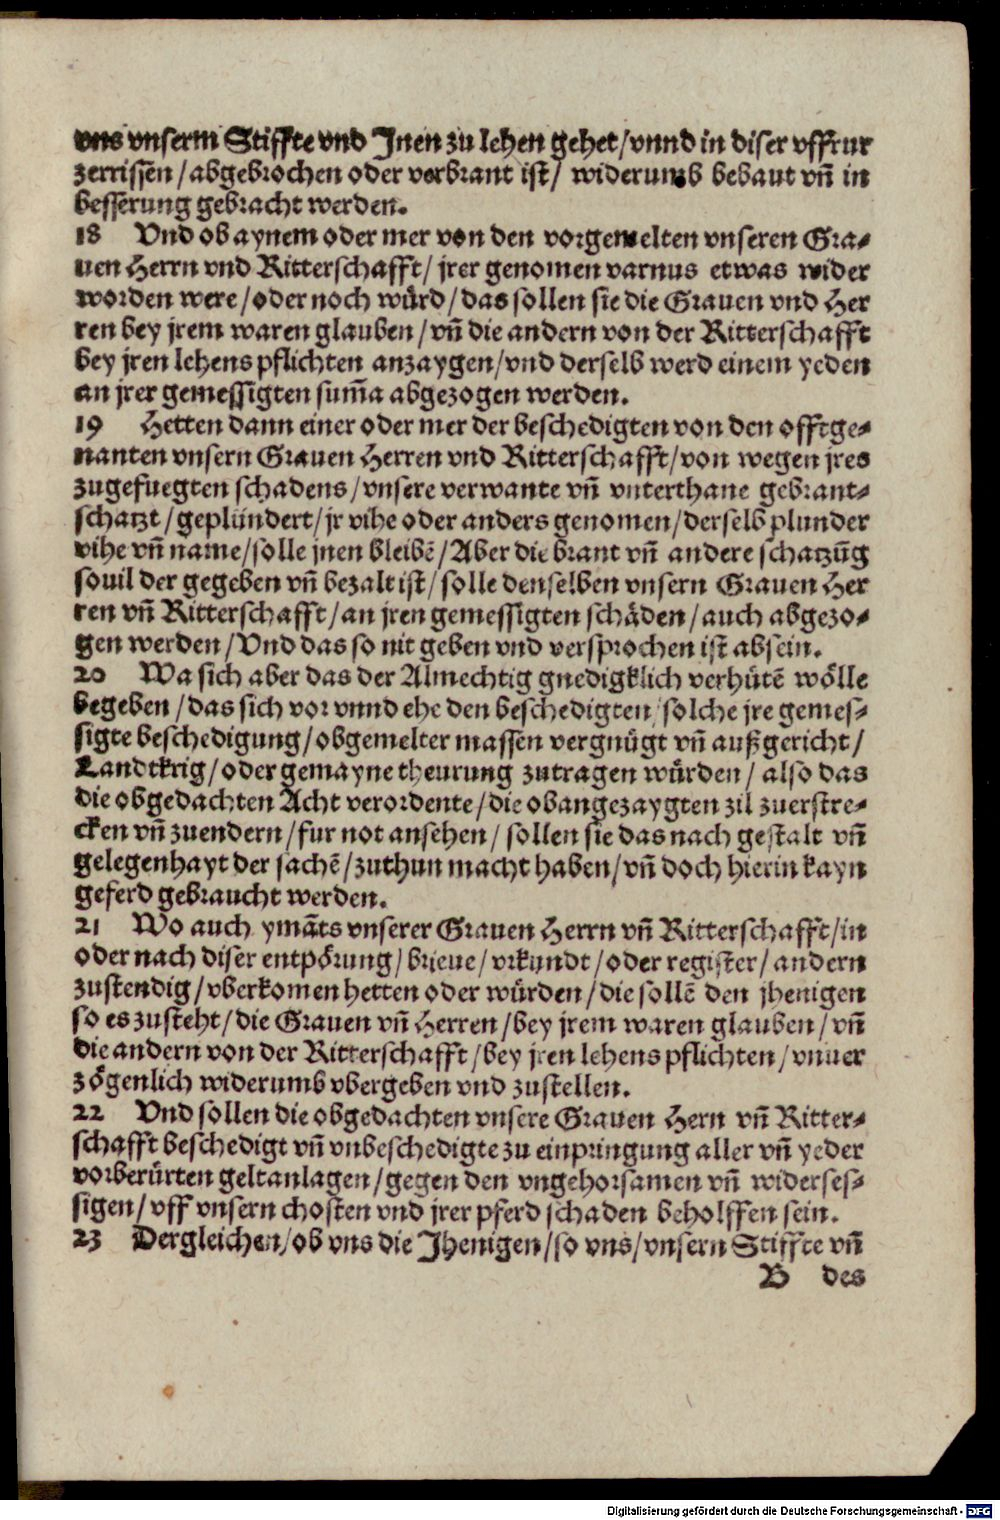 vns vnserm Stiffte vnd Jnen zu lehen gehet/vnnd in diser vffrur
zerrissen/abgebrochen oder verbrant ist/ widerumb bebaut vñ in
besserung gebracht werden.
18 Vnd ob aynem oder mer von den vorgemelten vnseren Gra-
uen Herrn vnd Ritterschafft/ jrer genomen varnus etwas wider
worden were/oder noch würd/das sollen sie die Grauen vnd Her
ren bey jrem waren glauben/vñ die andern von der Ritterschafft
bey jren lehens pflichten anzaygen/vnd derselb werd einem yeden
an jrer gemessigten sum̄a abgezogen werden.
19 Hetten dann einer oder mer der beschedigten von den offtge-
nanten vnsern Grauen Herren vnd Ritterschafft/von wegen jres
zugefuegten schadens/vnsere verwante vñ vnterthane gebrant-
schatzt/geplündert/jr vihe oder anders genomen/derselb plunder
vihe vñ name/solle jnen bleibē/Aber die brant vñ andere schatzūg
souil der gegeben vñ bezalt ist/solle denselben vnsern Grauen Her
ren vñ Ritterschafft/an jren gemessigten schäden/auch abgezo-
gen werden/Vnd das so nit geben vnd versprochen ist absein.
20 Wa sich aber das der Almechtig gnedigklich verhütē wölle
begeben/das sich vor vnnd ehe den beschedigten/solche jre gemes-
sigte beschedigung/obgemelter massen vergnügt vñ außgericht/
Landtkrig/oder gemayne theurung zutragen würden/also das
die obgedachten Acht verordente/die obangezaygten zil zuerstre-
cken vñ zuendern/fur not ansehen/sollen sie das nach gestalt vñ
gelegenhayt der sachē/zuthun macht haben/vñ doch hierin kayn
geferd gebraucht werden.
21 Wo auch ymāts vnserer Grauen Herrn vñ Ritterschafft/in
oder nach diser entpörung/brieue/vrkundt/oder register/andern
zustendig/vberkomen hetten oder würden/die sollē den jhenigen
so es zusteht/die Grauen vñ Herren/bey jrem waren glauben/vñ
die andern von der Ritterschafft/bey jren lehens pflichten/vnuer
zögenlich widerumb vbergeben vnd zustellen.
22 Vnd sollen die obgedachten vnsere Grauen Hern vñ Ritter-
schafft beschedigt vñ vnbeschedigte zu einpringung aller vñ yeder
vorberürten geltanlagen/gegen den vngehorsamen vñ widerses-
sigen/vff vnsern chosten vnd jrer pferd schaden beholffen sein.
23 Dergleichen/ob vns die Jhenigen/so vns/vnsern Stiffte vñ
B des
Digitalisierung gefördert durch die Deutsche Forschungsgemeinschaft - DFG